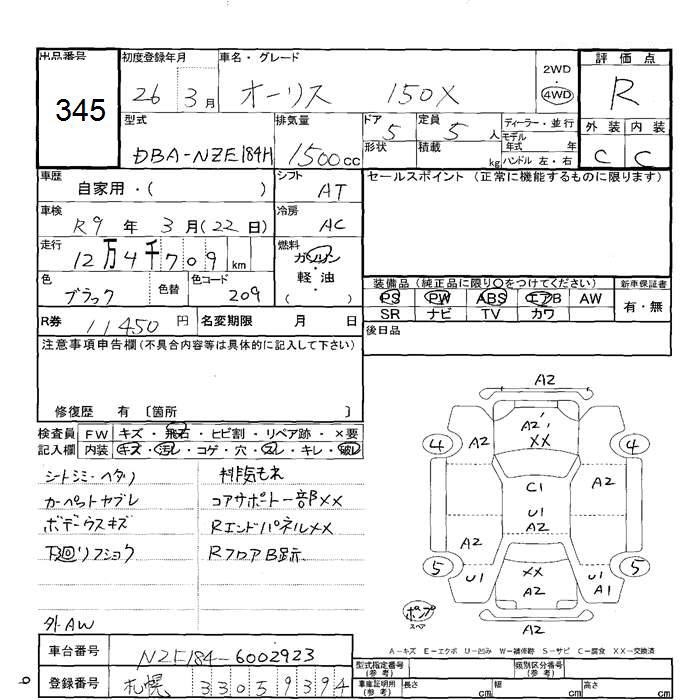 出品番号
345
初度登録年月
26 3月
車名・グレード
オーリス 150X
2WD
・
4WD
評価点
R
外装 内装
C C
型式
DBA-NZE184H
排気量
1500cc
ドア
5
定員
5人
形状
積載
kg
ディーラー・並行
モデル
年式 年
ハンドル 左・右
車歴
自家用・( )
シフト
AT
車検
R9年 3月(22日)
冷房
AC
走行
12万4千709km
燃料
ガソリン
・
軽・油
( )
色
ブラック
色替
色コード
209
R券 11450円
名変期限 月 日
セールスポイント(正常に機能するものに限ります)
装備品(純正品に限り○をつけてください)
PS PW ABS エアB AW
SR ナビ TV カワ
新車保証書
有・無
後日品
注意事項申告欄(不具合内容等は具体的に記入して下さい)
修復歴 有 〔箇所 〕
検査員
記入欄
FW キズ・飛石・ヒビ割・リペア跡・×要
内装 キズ・汚レ・コゲ・穴・スレ・キレ・破レ
シートシミ・ヘタリ
カーペットヤブレ
ボデーウスキズ
下廻リフショク
外AW
排気モレ
コアサポート一部XX
RエンドパネルXX
RフロアB跡示
A2
A2
XX
4 A2 4
A2
C1
U1
A2
A2
5 U1 5
XX
A2
U1
A1
A2
ポンプ
スペア
A-キズ E-エクボ U-凹み W-補修跡 S-サビ C-腐食 XX-交換済
車台番号 NZE184-6002923
登録番号 札幌 330 ５ 9394
型式指定番号
(参考)
類別区分番号
(参考)
車庫証明用
(参考)
長さ cm 幅 cm 高さ cm